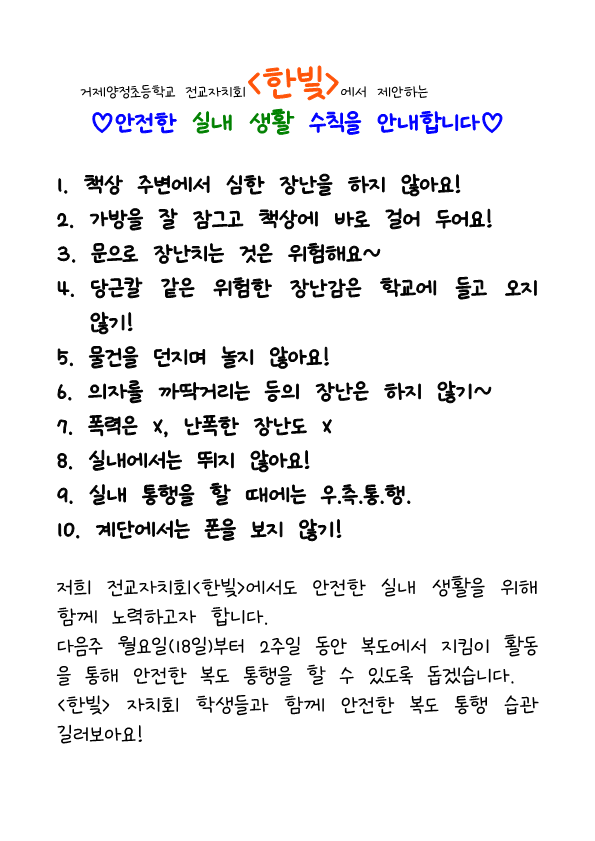 거제양정초등학교 전교자치회<한빛>에서 제안하는
♡안전한 실내 생활 수칙을 안내합니다♡
1. 책상 주변에서 심한 장난을 하지 않아요!
2. 가방을 잘 잠그고 책상에 바로 걸어 두어요!
3. 문으로 장난치는 것은 위험해요~
4. 당근칼 같은 위험한 장난감은 학교에 들고 오지
않기!
5. 물건을 던지며 놀지 않아요!
6. 의자를 까딱거리는 등의 장난은 하지 않기~
7. 폭력은 X, 난폭한 장난도 X
8. 실내에서는 뛰지 않아요!
9. 실내 통행을 할 때에는 우.측.통.행.
10. 계단에서는 폰을 보지 않기!
저희 전교자치회<한빛>에서도 안전한 실내 생활을 위해
함께 노력하고자 합니다.
다음주 월요일(18일)부터 2주일 동안 복도에서 지킴이 활동
을 통해 안전한 복도 통행을 할 수 있도록 돕겠습니다.
<한빛> 자치회 학생들과 함께 안전한 복도 통행 습관
길러보아요!